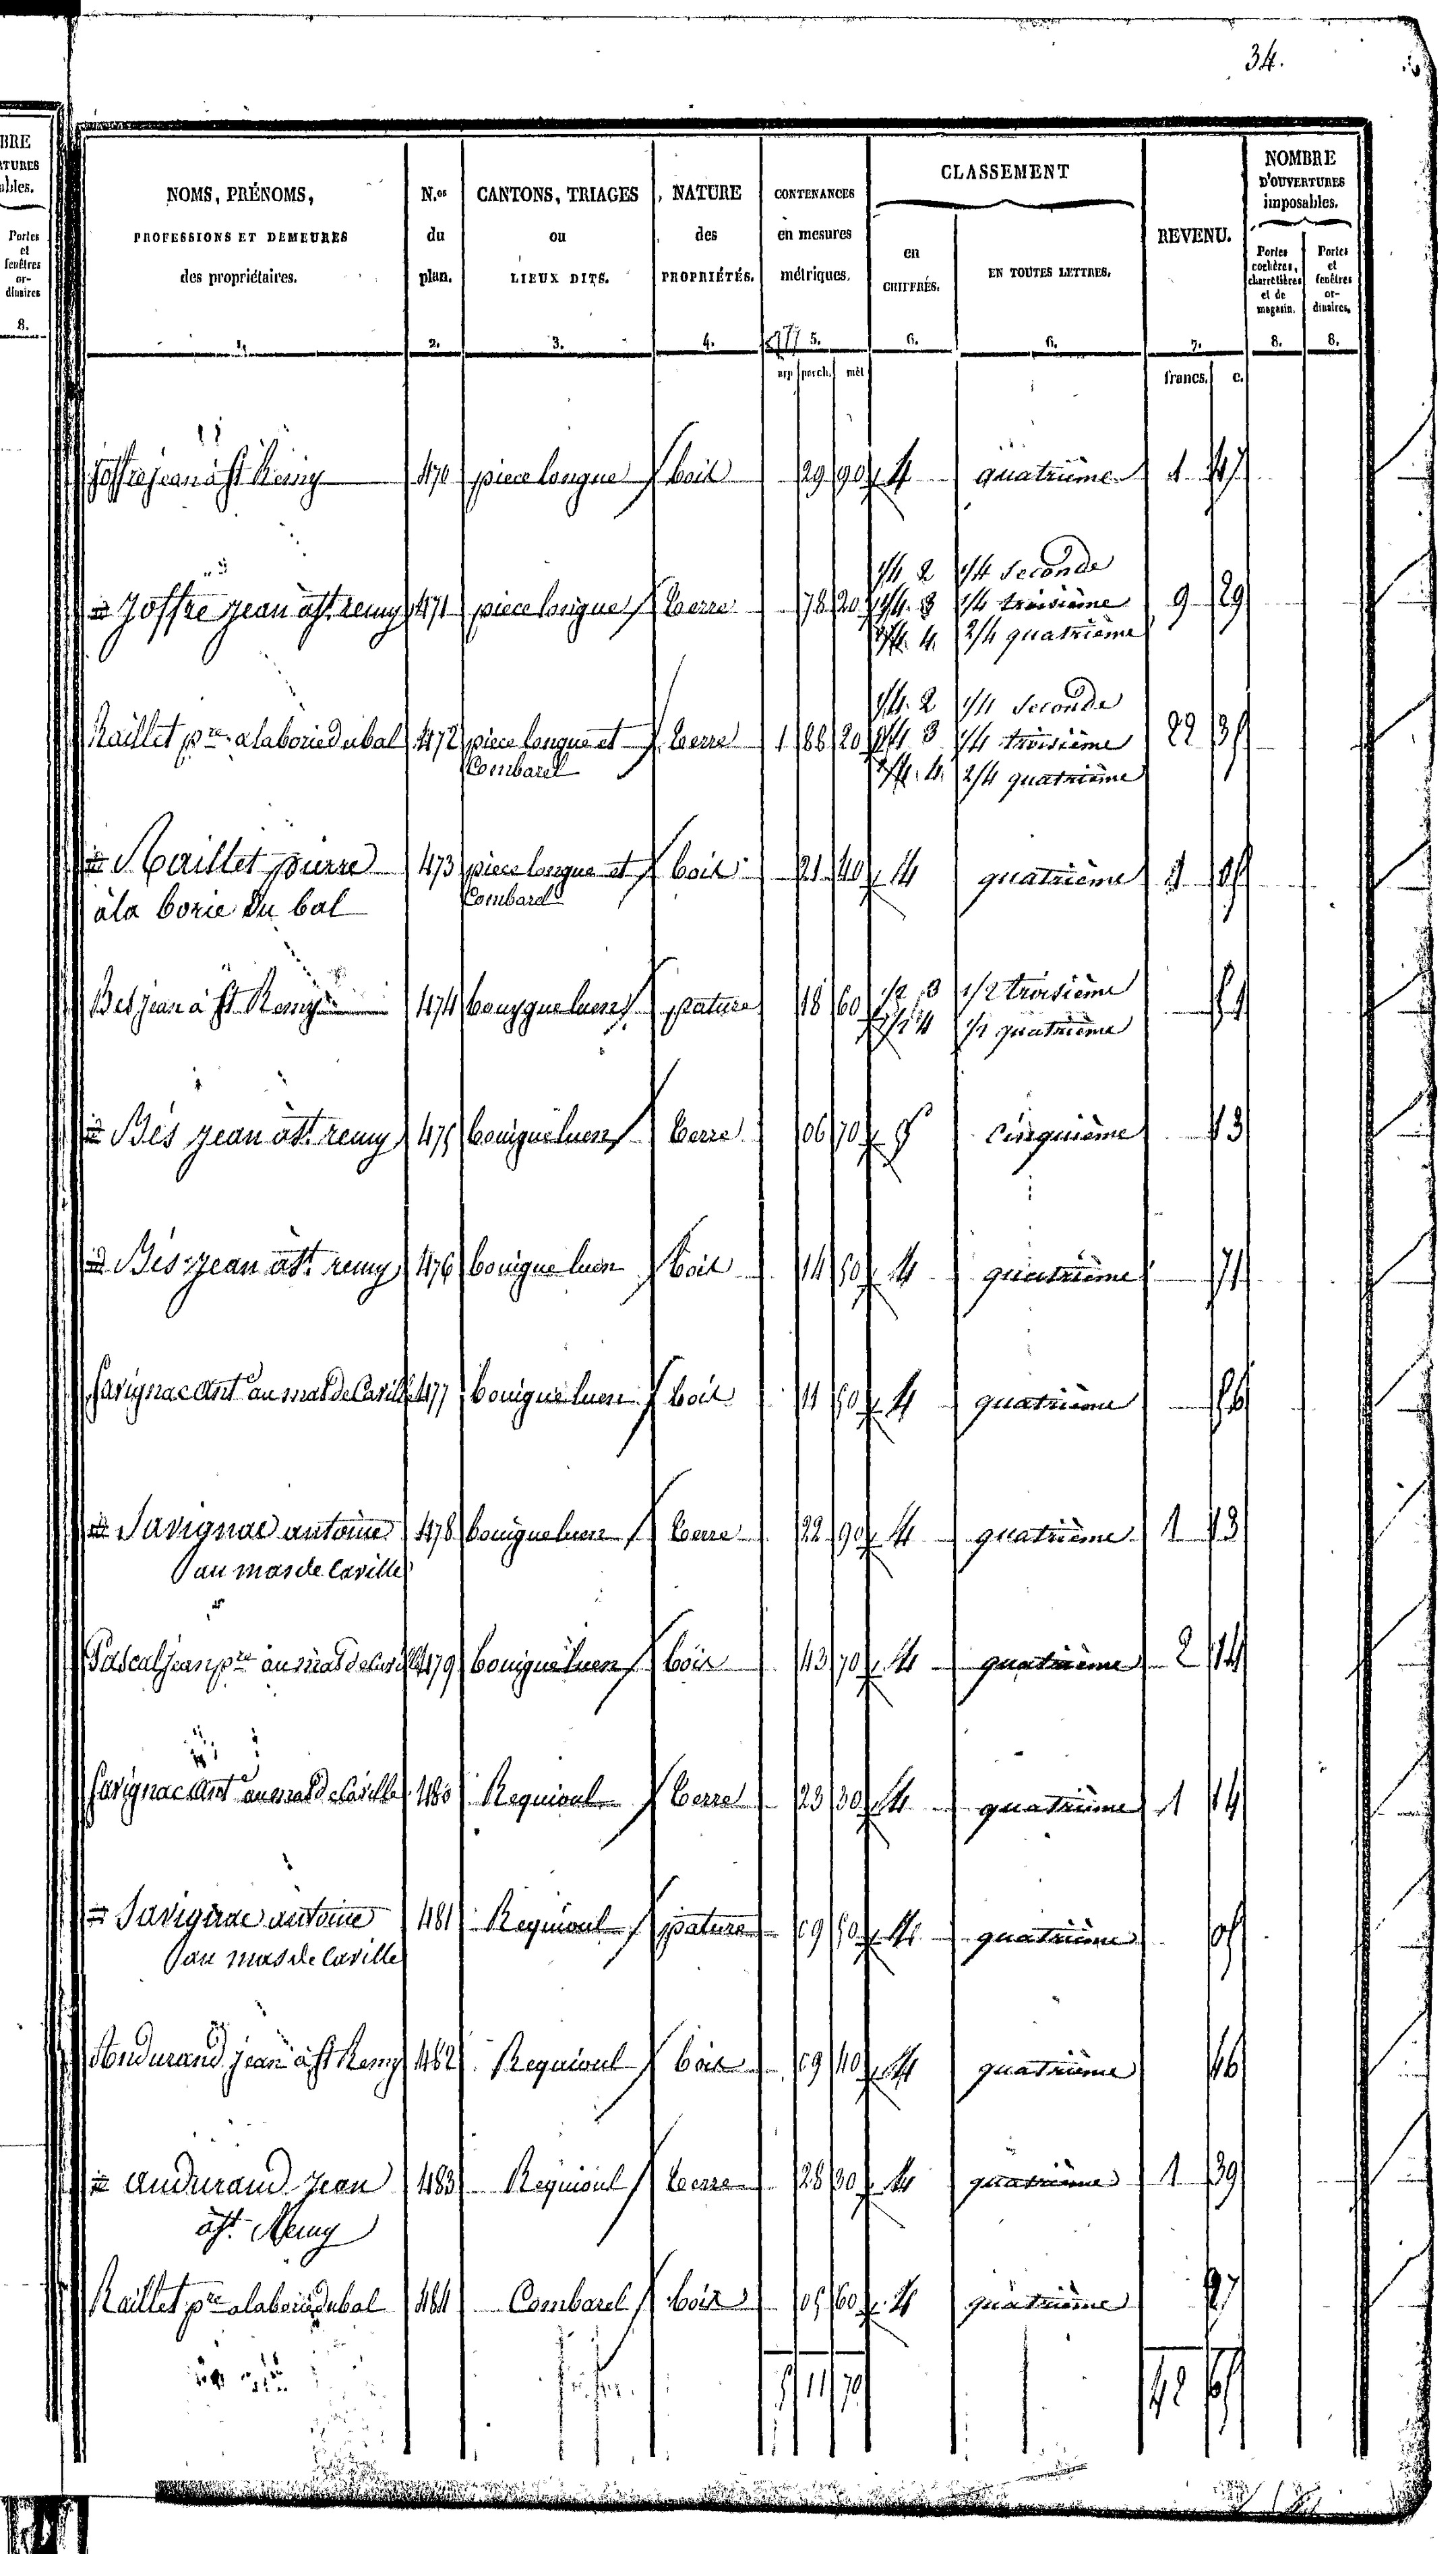 34.
BRE
TURES
ables.
Portes
et
fenêtres
or-
dinaires
8.
NOMS, PRÉNOMS,
PROFESSIONS ET DEMEURES
des propriétaires.
1.
N.os
du
plan.
2.
CANTONS, TRIAGES
ou
LIEUX DITS.
3.
NATURE
des
PROPRIÉTÉS.
4.
CONTENANCES
en mesures
métriques.
5.
arp perch. mèt
CLASSEMENT
en
CHIFFRES.
6.
EN TOUTES LETTRES.
6.
REVENU.
7.
francs. c.
NOMBRE
D'OUVERTURES
imposables.
Portes
cochères,
charretières
et de
magasin.
8.
Portes
et
fenêtres
or-
dinaires.
8.
Joffre jean à St Remy 470 piece longue bois 29 90 4 quatrième 1 47
1/4 2 1/4 seconde
Joffre jean à St. remy 471 piece longue terre 78 20 1/4 3 1/4 troisième 9 29
2/4 4 2/4 quatrième
1/4 2 1/4 seconde
Raillet pre a la borie du bal 472 piece longue et terre 1 88 20 1/4 3 1/4 troisième 22 35
Combarel 2/4 4 2/4 quatrième
Raillet pierre 473 piece longue et bois 21 40 4 quatrième 1 05
à la borie du bal Combarel
Bes jean à St Remy 474 bouygue luen pature 18 60 1/2 3 1/2 troisième 51
1/2 4 1/2 quatrième
Bés jean à St. remy 475 bouigue luen terre 06 70 5 cinquième 13
Bés jean à St. remy 476 bouigue luen bois 14 50 4 quatrième 71
Savignac Ante au mas de Caville 477 bouigue luen bois 11 50 4 quatrième 56
Savignac antoine 478 bouigue luen terre 22 90 4 quatrième 1 13
au mas de Caville
Pascal jean pre au mas de Caville 479 bouigue luen bois 43 70 4 quatrième 2 14
Savignac Ante au mas de Caville 480 Requioul terre 23 30 4 quatrième 1 14
Savignac antoine 481 Requioul pature 09 50 4 quatrième 05
au mas de Caville
Andurand jean à St Remy 482 Requioul bois 09 40 4 quatrième 46
andurand jean 483 Requioul terre 28 30 4 quatrième 1 39
à St. Remy
Raillet pre a la borie du bal 484 Combarel bois 05 60 4 quatrième 27
5 11 70 42 65